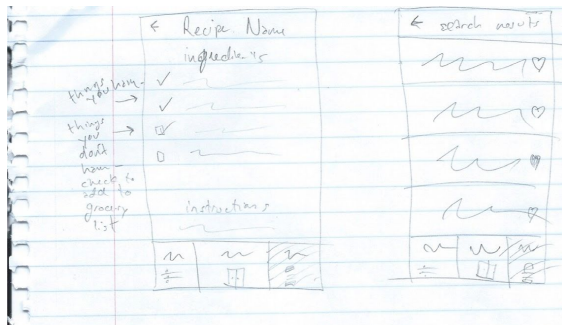 ← Recipe Name
ingredients
things you have →
things
you →
don't
have -
check to
add to
grocery
list
instructions
← search results